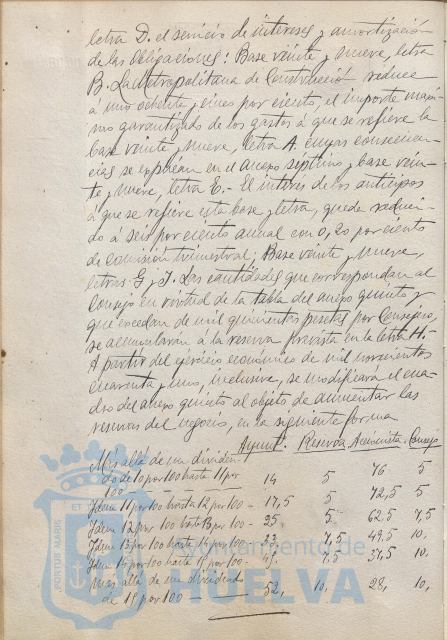 letra D. el servicio de intereses y amortización
de las Obligaciones: Base veinte y nueve, letra
B. La Metropolitana de Construcción reduce
á uno ochenta y cinco por ciento, el importe máxi
mo garantizado de los gastos á que se refiere la
base veinte y nueve, letra A. cuyas consecuen-
cias se explican en el anexo séptimo y base vein-
te y nueve, letra E.- El interés de los anticipos
á que se refiere esta base y letra, queda reduci
do á seis por ciento anual con 0,20 por ciento
de comisión trimestral; Base veinte y nueve,
letras G y I. Las cantidades que correspondan al
Consejo en virtud de la tabla del anexo quinto y
que excedan de mil quinientas pesetas por Consejero,
se acumularán á la reserva prevista en la letra H.-
A partir del ejercicio económico de mil novecientos
cuarenta y uno, inclusive, se modificará el cua-
dro del anexo quinto al objeto de aumentar las
reservas del negocio, en la siguiente forma
Ayunt.º Reserva Accionista Consejo
Más allá de un dividen-
do de 10 por 100 hasta 11 por
100 - 14 5 76 5
Idem 11 por 100 hasta 12 por 100 - 17,5 5 72,5 5
Idem 12 por 100 hasta 13 por 100 - 25, 5 62,5 7,5
Idem 13 por 100 hasta 14 por 100 - 33, 7,5 49,5 10,
Idem 14 por 100 hasta 15 por 100 - 45, 7,5 37,5 10,
Mas allá de un dividendo
de 15 por 100 - 52, 10, 28, 10,
PORTUS MARIS
ET
Ayuntamiento de
HUELVA